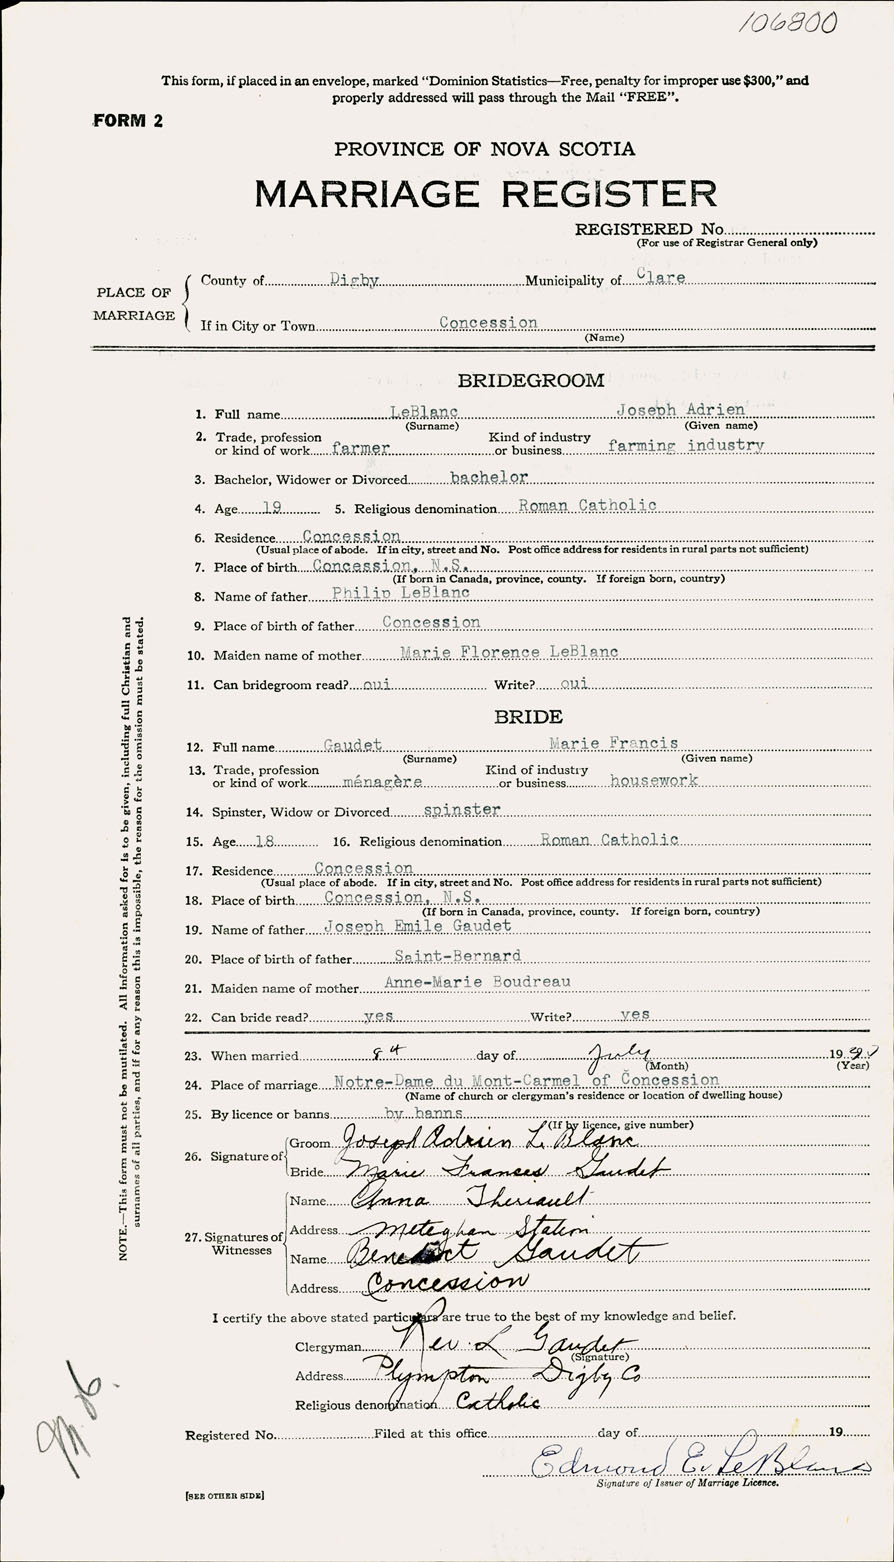 106800
This form, if placed in an envelope, marked “Dominion Statistics—Free, penalty for improper use $300,” and
properly addressed will pass through the Mail “FREE”.
FORM 2
PROVINCE OF NOVA SCOTIA
MARRIAGE REGISTER
REGISTERED No.
(For use of Registrar General only)
PLACE OF MARRIAGE
County of Digby Municipality of Clare
If in City or Town Concession
(Name)
BRIDEGROOM
1. Full name LeBlanc Joseph Adrien
(Surname) (Given name)
2. Trade, profession or kind of work farmer Kind of industry or business farming industry
3. Bachelor, Widower or Divorced bachelor
4. Age 19 5. Religious denomination Roman Catholic
6. Residence Concession
(Usual place of abode. If in city, street and No. Post office address for residents in rural parts not sufficient)
7. Place of birth Concession, N.S.
(If born in Canada, province, county. If foreign born, country)
8. Name of father Philip LeBlanc
9. Place of birth of father Concession
10. Maiden name of mother Marie Florence LeBlanc
11. Can bridegroom read? oui Write? oui
BRIDE
12. Full name Gaudet Marie Francis
(Surname) (Given name)
13. Trade, profession or kind of work ménagère Kind of industry or business housework
14. Spinster, Widow or Divorced spinster
15. Age 18 16. Religious denomination Roman Catholic
17. Residence Concession
(Usual place of abode. If in city, street and No. Post office address for residents in rural parts not sufficient)
18. Place of birth Concession, N.S.
(If born in Canada, province, county. If foreign born, country)
19. Name of father Joseph Emile Gaudet
20. Place of birth of father Saint-Bernard
21. Maiden name of mother Anne-Marie Boudreau
22. Can bride read? yes Write? yes
23. When married 8th day of July 19
(Month) (Year)
24. Place of marriage Notre-Dame du Mont-Carmel of Concession
(Name of church or clergyman's residence or location of dwelling house)
25. By licence or banns by banns
(If by licence, give number)
26. Signature of
Groom Joseph Adrien LeBlanc
Bride Marie Frances Gaudet
27. Signatures of Witnesses
Name Anna Theriault
Address Meteghan Station
Name Benedict Gaudet
Address Concession
I certify the above stated particulars are true to the best of my knowledge and belief.
Clergyman Rev. L Gaudet
(Signature)
Address Plympton Digby Co
Religious denomination Catholic
Registered No. Filed at this office day of 19
Edmond E. LeBlanc
Signature of Issuer of Marriage Licence.
[SEE OTHER SIDE]
NOTE.—This form must not be mutilated. All information asked for is to be given, including full Christian and
surnames of all parties, and if for any reason this is impossible, the reason for the omission must be stated.